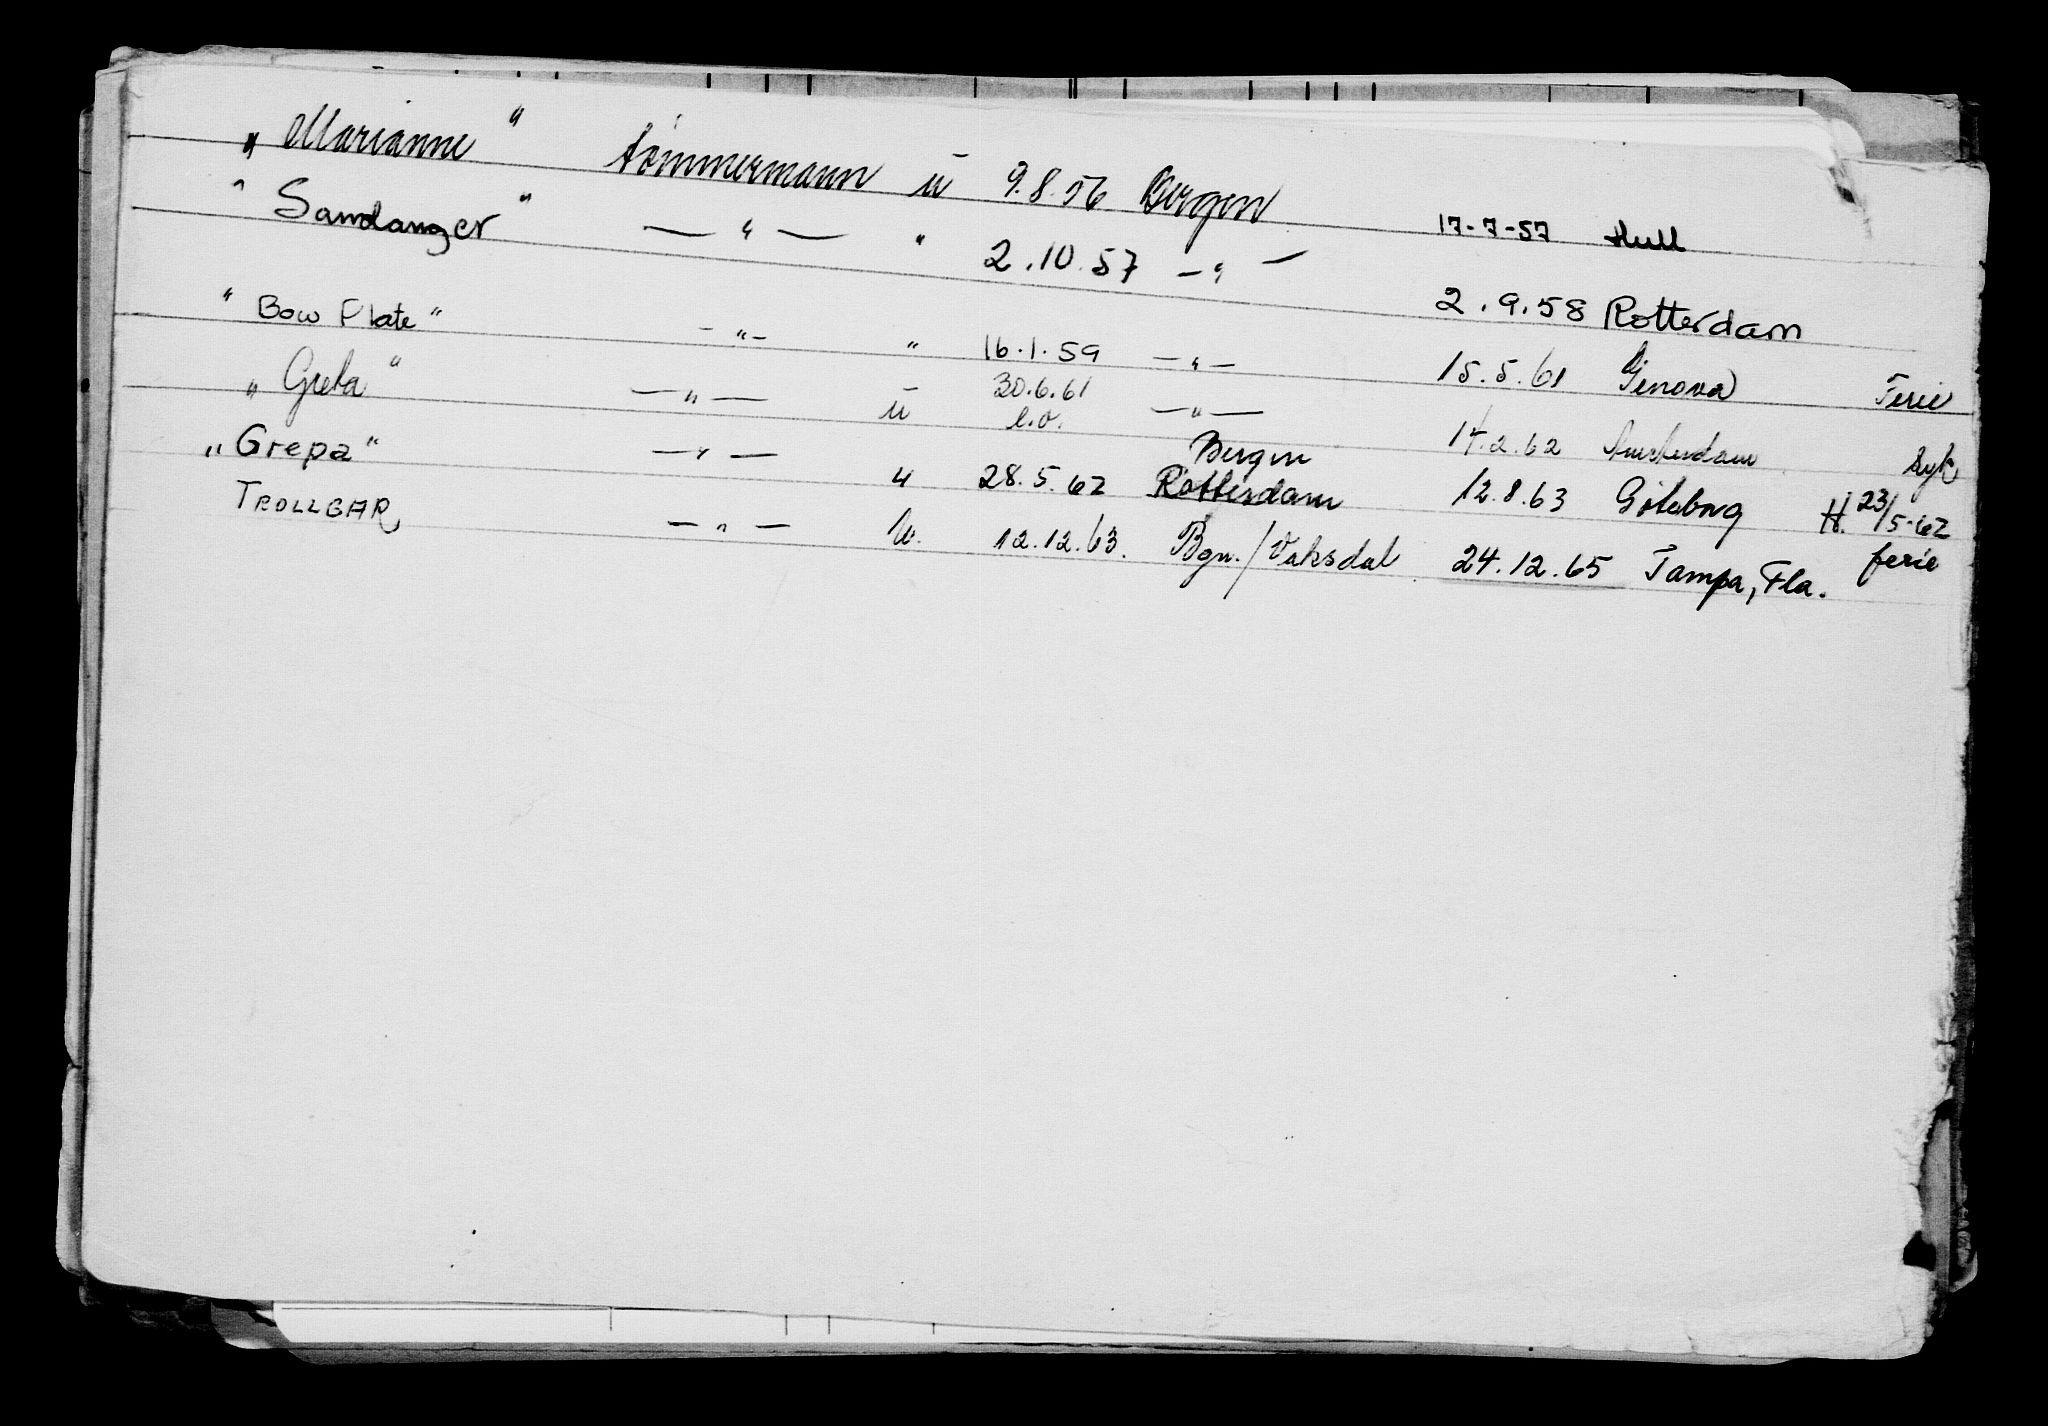 „ Marianne " tømmermann u 9.8.56 Bergen 17-7-57 Hull
" Sandanger " — " — " 2.10.57 — " — 2.9.58 Rotterdam
" Bow Plate " - " - " 16.1.59 — " — 15.5.61 Genova Ferie
„ Greta " — " — u 30.6.61 — " — 14.2.62 Amsterdam syk
e.o. Bergen
„ Grepa " — " — u 28.5.62 Rotterdam 12.8.63 Göteborg H. 23/5-62
TROLLGAR — " — u. 12.12.63. Bgn./Vaksdal 24.12.65 Tampa, Fla. ferie